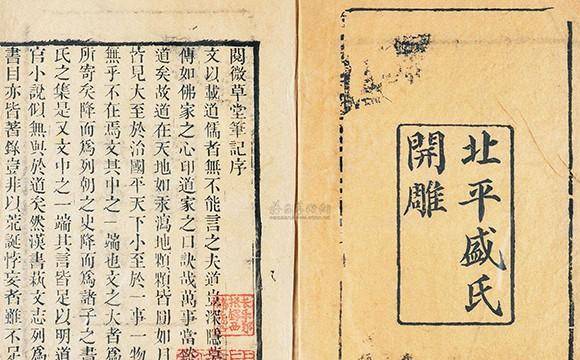 北平盛氏
開雕
閱微草堂筆記序
文以載道儒者無不能言之夫道豈深隱莫
傳如佛家之心印道家之口訣哉萬事當
道矣故道在天地如汞瀉地顆顆皆圓如月
皆見大至於治國平天下小至於一事一物
無乎不在焉文其中之一端也文之大者爲
所寄矣降而爲列朝之史降而爲諸子之書
氏之集是又文中之一端其言皆足以明道
官小說似無與於道矣然漢書藝文志列爲
書目亦皆著錄豈非以荒誕悖妄者雖不足